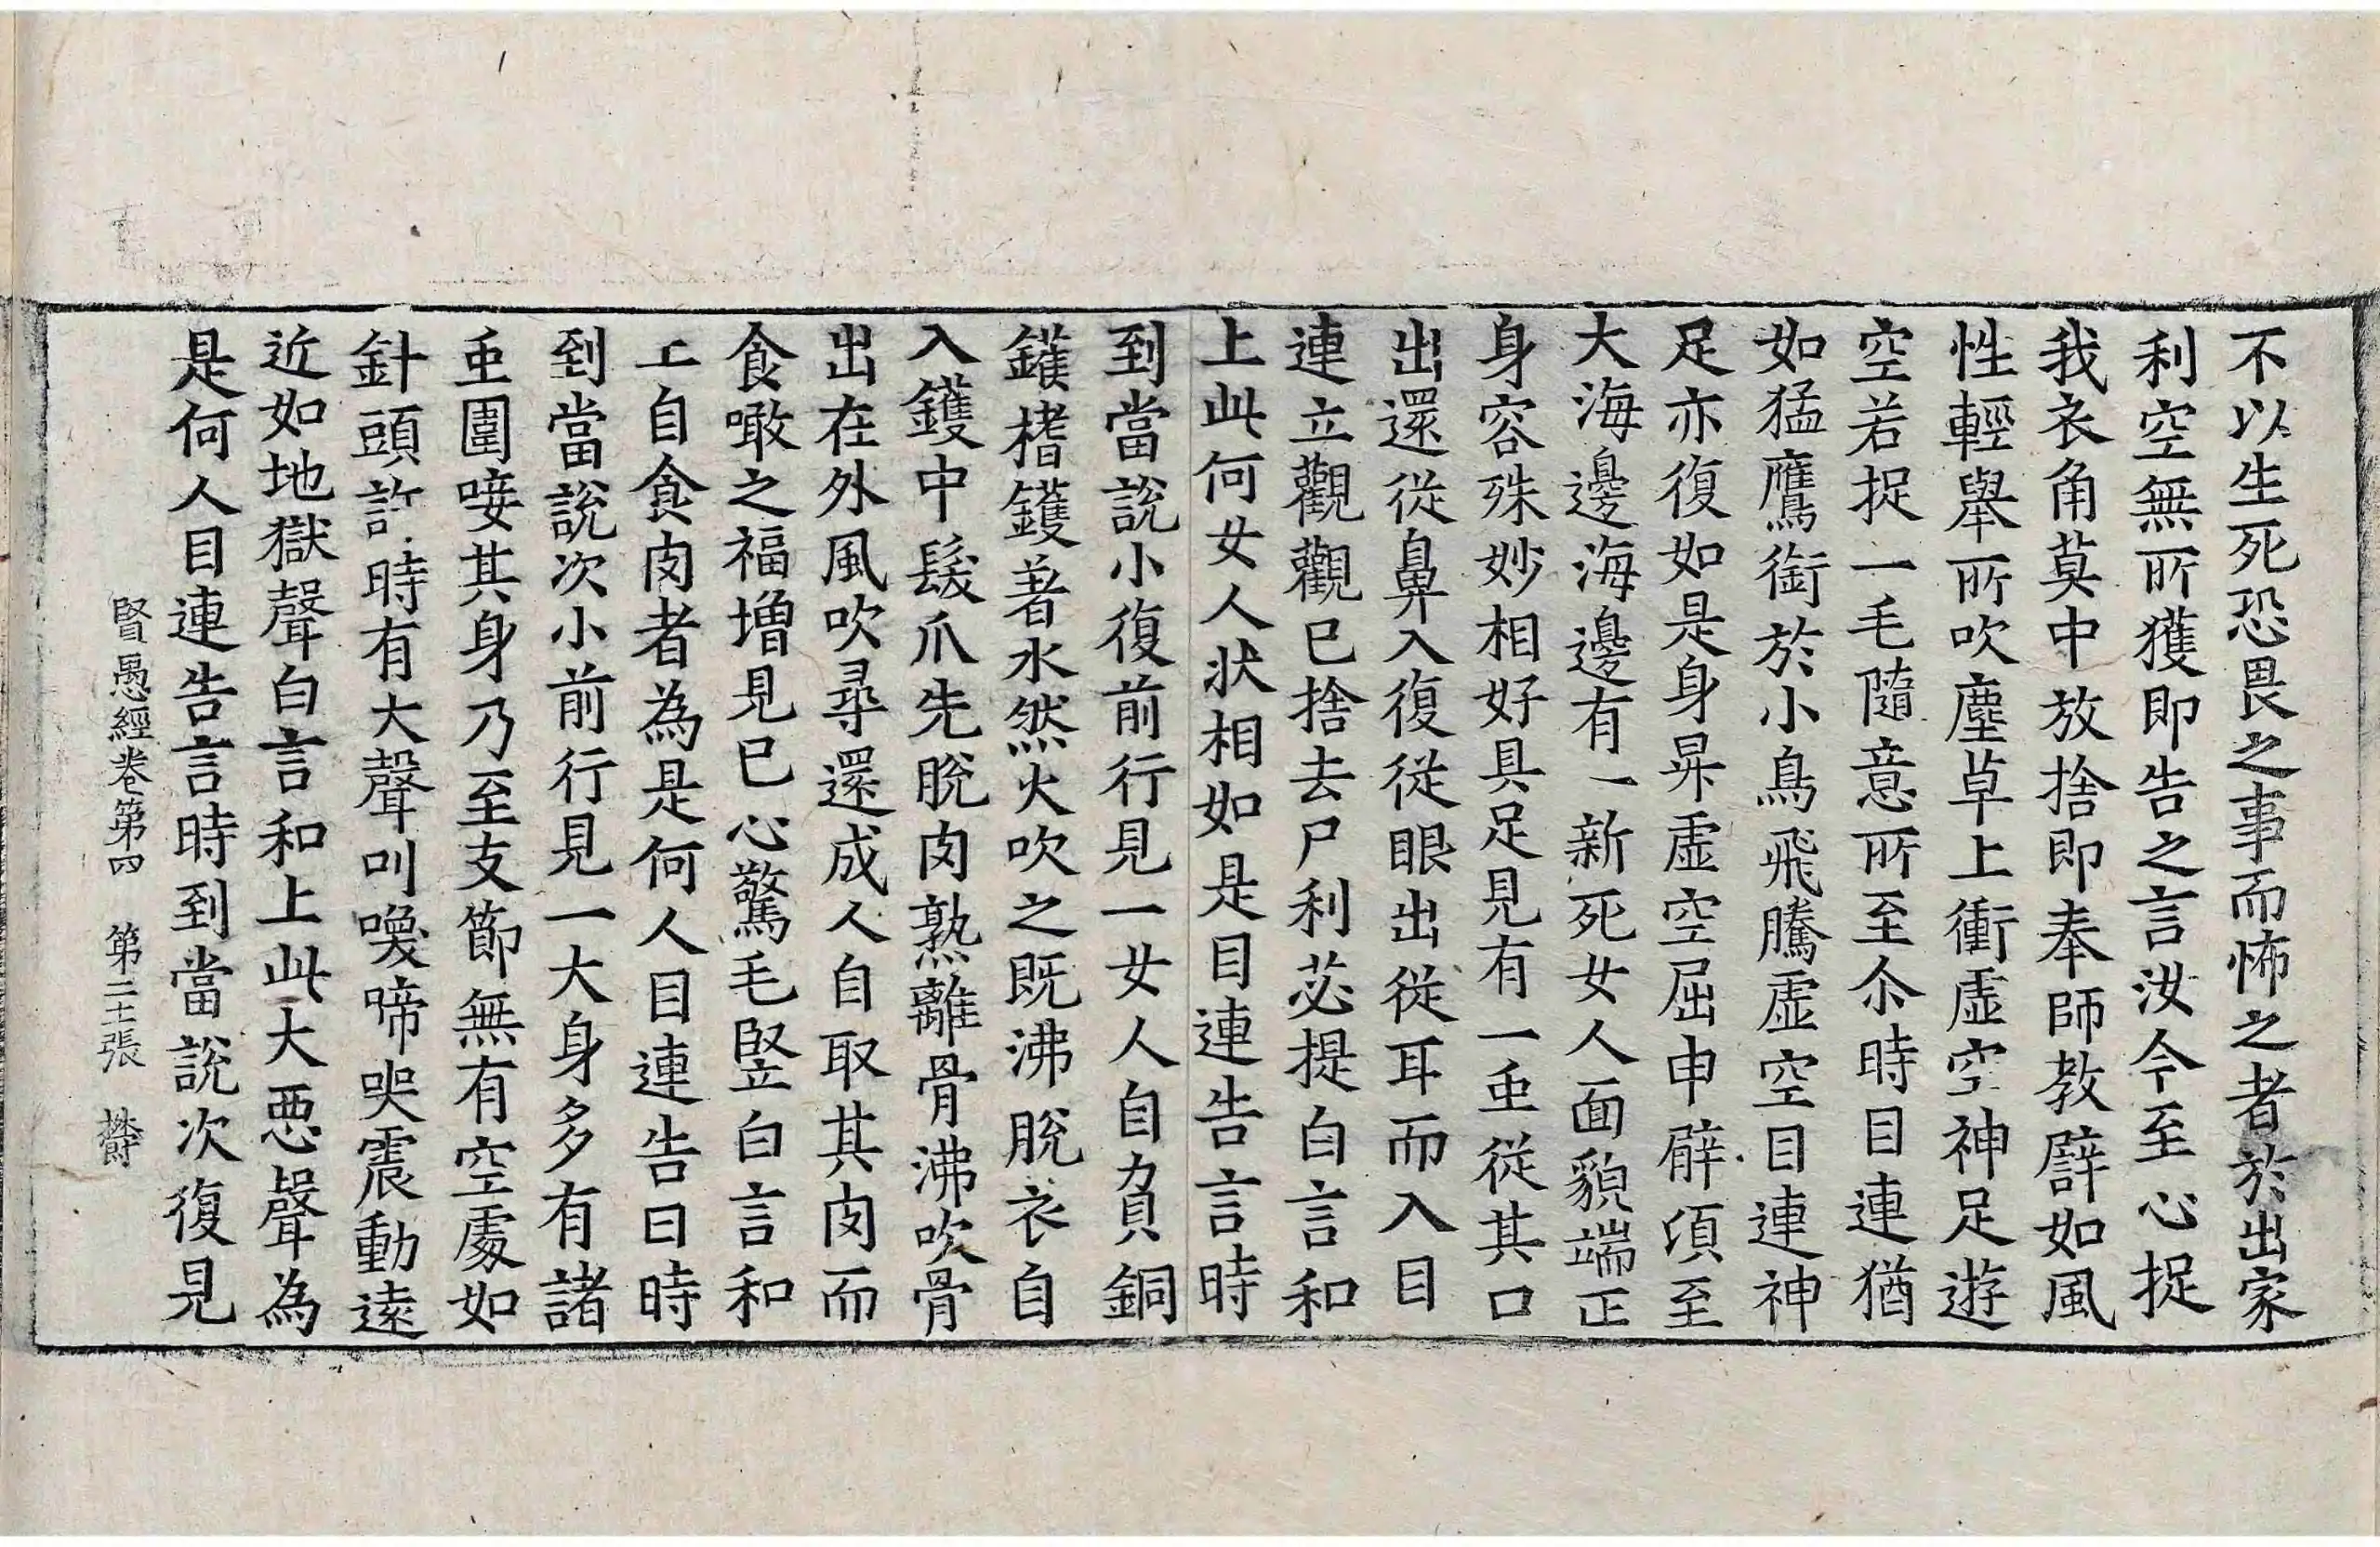 不以生死恐畏之事而怖之者於出家
利空無所獲即告之言汝今至心捉
我衣角莫中放捨即奉師教譬如風
性輕舉所吹塵草上衝虛空神足遊
空若捉一毛隨意所至尒時目連猶
如猛鷹銜於小鳥飛騰虛空目連神
足亦復如是身昇虛空屈申臂湏至
大海邊海邊有一新死女人面貌端正
身容殊妙相好具足見有一虫從其口
出還從鼻入復從眼出從耳而入目
連立觀觀已捨去尸利苾提白言和
上此何女人狀相如是目連告言時
到當說小復前行見一女人自負銅
鑊榰鑊著水然火吹之既沸脫衣自
入鑊中髮爪先脫肉熟離骨沸吹骨
出在外風吹尋還成人自取其肉而
食噉之福增見已心驚毛竪白言和
上自食肉者為是何人目連告曰時
到當說次小前行見一大身多有諸
虫圍唼其身乃至支節無有空處如
針頭許時有大聲叫喚啼哭震動遠
近如地獄聲白言和上此大惡聲為
是何人目連告言時到當說次復見
賢愚經卷第四 第二十張